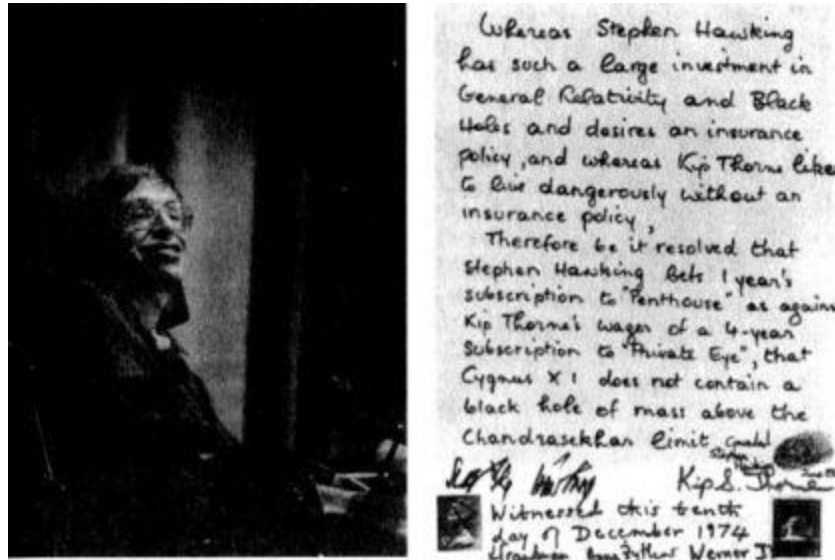 Whereas Stephen Hawking
has such a large investment in
General Relativity and Black
Holes and desires an insurance
policy, and whereas Kip Thorne likes
to live dangerously without an
insurance policy,
Therefore be it resolved that
Stephen Hawking bets 1 year's
subscription to "Penthouse" as against
Kip Thorne's wager of a 4-year
Subscription to "Private Eye", that
Cygnus X 1 does not contain a
black hole of mass above the
Chandrasekhar limit
Kip S. Thorne
Witnessed this tenth
day of December 1974
Werner